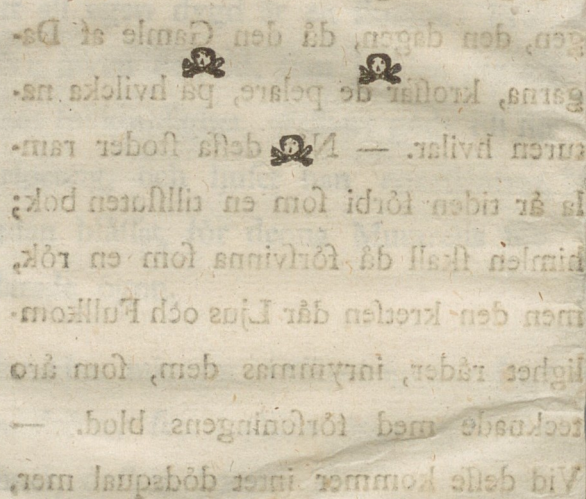 gen, den dagen, då den Gamle af Da-
garna, kroſſar de pelare, på hvilcka na-
turen hvilar. — deſſa ſtoder ram-
la är tiden förbi ſom en tillſluten bok;
himlen ſkall då förſvinna ſom en rök,
men den kretſen där Ljus och Fullkom-
lighet råder, inrymmas dem, ſom äro
tecknade med förſoningens blod. —
Vid deſſe kommer intet dödsqual mer,